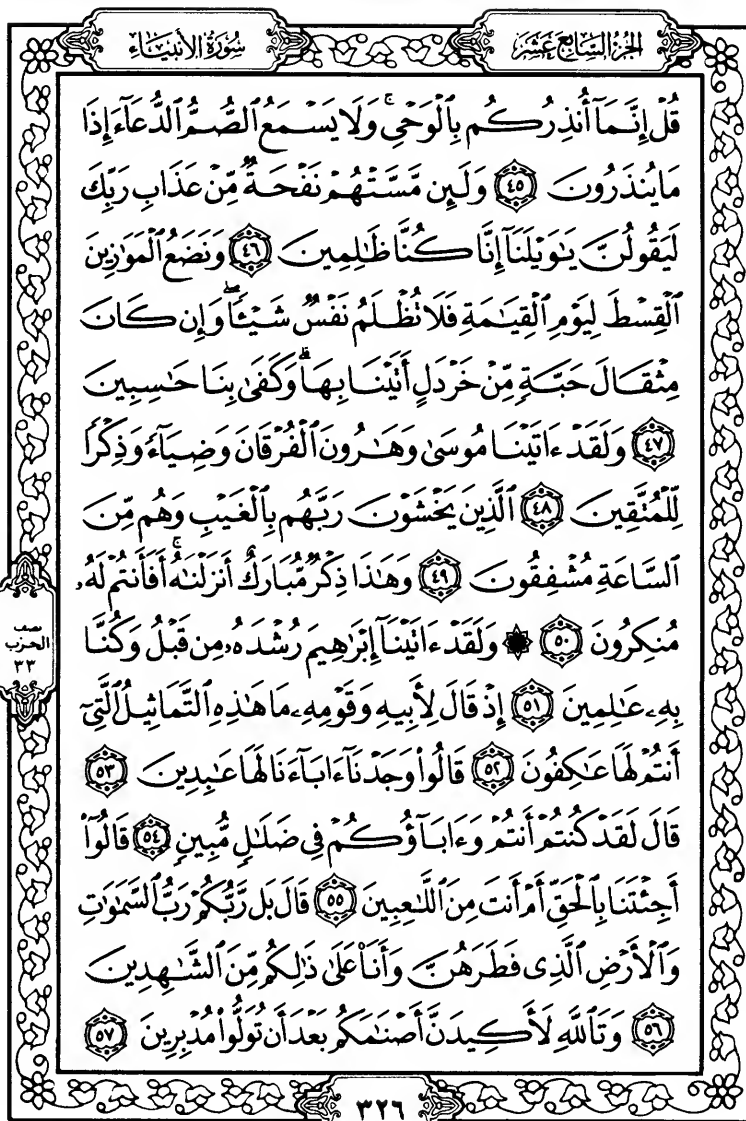 الجزء السابع عشر
سورة الأنبياء
قُلْ إِنَّمَآ أُنذِرُكُم بِٱلْوَحْىِ ۚ وَلَا يَسْمَعُ ٱلصُّمُّ ٱلدُّعَآءَ إِذَا
مَا يُنذَرُونَ ٤٥ وَلَئِن مَّسَّتْهُمْ نَفْحَةٌ مِّنْ عَذَابِ رَبِّكَ
لَيَقُولُنَّ يَٰوَيْلَنَآ إِنَّا كُنَّا ظَٰلِمِينَ ٤٦ وَنَضَعُ ٱلْمَوَٰزِينَ
ٱلْقِسْطَ لِيَوْمِ ٱلْقِيَٰمَةِ فَلَا تُظْلَمُ نَفْسٌ شَيْـًٔا ۖ وَإِن كَانَ
مِثْقَالَ حَبَّةٍ مِّنْ خَرْدَلٍ أَتَيْنَا بِهَا ۗ وَكَفَىٰ بِنَا حَٰسِبِينَ
٤٧ وَلَقَدْ ءَاتَيْنَا مُوسَىٰ وَهَٰرُونَ ٱلْفُرْقَانَ وَضِيَآءً وَذِكْرًا
لِّلْمُتَّقِينَ ٤٨ ٱلَّذِينَ يَخْشَوْنَ رَبَّهُم بِٱلْغَيْبِ وَهُم مِّنَ
ٱلسَّاعَةِ مُشْفِقُونَ ٤٩ وَهَٰذَا ذِكْرٌ مُّبَارَكٌ أَنزَلْنَٰهُ ۚ أَفَأَنتُمْ لَهُۥ
مُنكِرُونَ ٥٠ ۞ وَلَقَدْ ءَاتَيْنَآ إِبْرَٰهِيمَ رُشْدَهُۥ مِن قَبْلُ وَكُنَّا
بِهِۦ عَٰلِمِينَ ٥١ إِذْ قَالَ لِأَبِيهِ وَقَوْمِهِۦ مَا هَٰذِهِ ٱلتَّمَاثِيلُ ٱلَّتِىٓ
أَنتُمْ لَهَا عَٰكِفُونَ ٥٢ قَالُوا۟ وَجَدْنَآ ءَابَآءَنَا لَهَا عَٰبِدِينَ ٥٣
قَالَ لَقَدْ كُنتُمْ أَنتُمْ وَءَابَآؤُكُمْ فِى ضَلَٰلٍ مُّبِينٍ ٥٤ قَالُوٓا۟
أَجِئْتَنَا بِٱلْحَقِّ أَمْ أَنتَ مِنَ ٱللَّٰعِبِينَ ٥٥ قَالَ بَل رَّبُّكُمْ رَبُّ ٱلسَّمَٰوَٰتِ
وَٱلْأَرْضِ ٱلَّذِى فَطَرَهُنَّ وَأَنَا۠ عَلَىٰ ذَٰلِكُم مِّنَ ٱلشَّٰهِدِينَ
٥٦ وَتَٱللَّهِ لَأَكِيدَنَّ أَصْنَٰمَكُم بَعْدَ أَن تُوَلُّوا۟ مُدْبِرِينَ ٥٧
نصف
الحزب
٣٣
٣٢٦